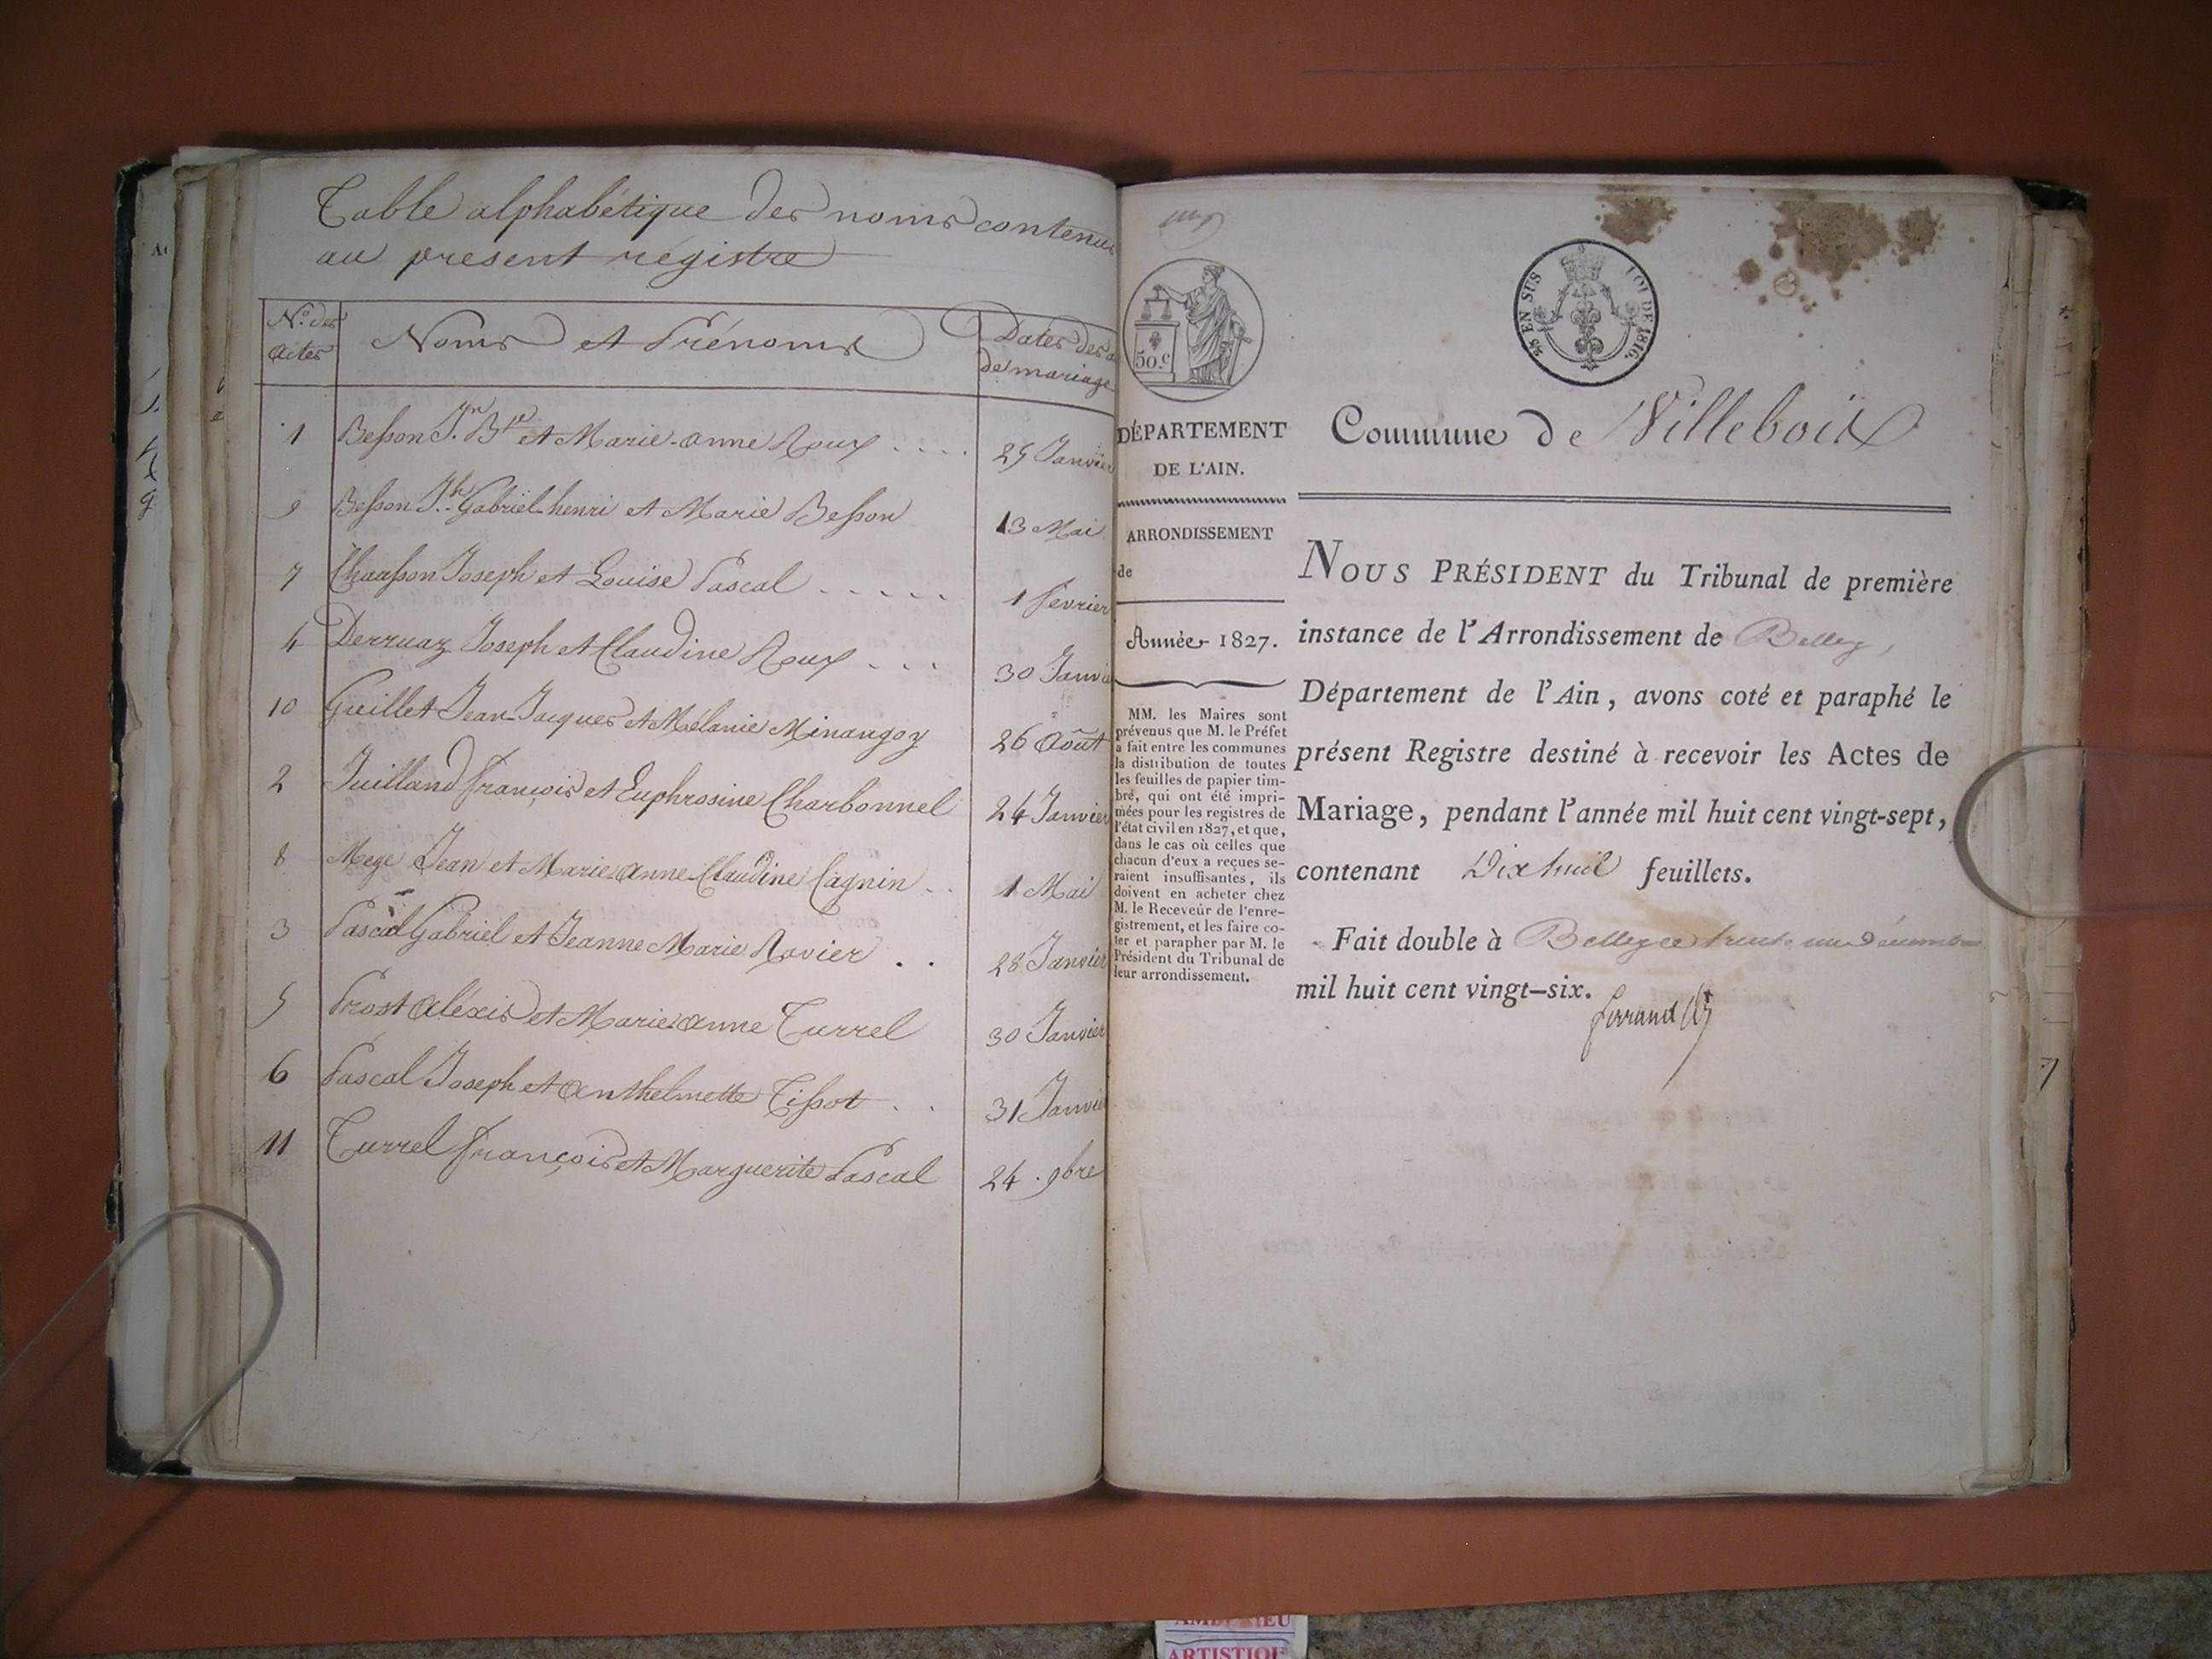 Table alphabétique des noms contenus
au présent régistre
N.º des
Actes
Noms et Prénoms
Dates des
de mariage
1 Besson J.n B.te et Marie-anne Roux .... 25 Janvier
9 Besson J.h Gabriël henri et Marie Besson 13 Mai
7 Chausson Joseph et Louise Pascal ..... 1 fevrier
4 Derruaz Joseph et Claudine Roux ... 30 Janvi
10 Guillet Jean-Jacques et Mélanie Minangoy 26 Août
2 Juilland françois et Euphrosine Charbonnel 24 Janvier
8 Mege Jean et Marie anne Claudine Cagnin .. 1 Mai
3 Pascal Gabriel et Jeanne Marie Ravier .. 28 Janvier
5 Prost aléxis et Marie anne Turrel 30 Janvier
6 Pascal Joseph et anthelmette Tissot .. 31 Janvier
11 Turrel françois et Marguerite Pascal 24 . 9bre
50.c
EN SUS LOI DE 1816.
DÉPARTEMENT
DE L'AIN.
ARRONDISSEMENT
de
Année 1827.
MM. les Maires sont
prévenus que M. le Préfet
a fait entre les communes
la distribution de toutes
les feuilles de papier tim-
bré, qui ont été impri-
mées pour les registres de
l'état civil en 1827, et que,
dans le cas où celles que
chacun d'eux a reçues se-
raient insuffisantes, ils
doivent en acheter chez
M. le Receveur de l'enre-
gistrement, et les faire co-
ter et parapher par M. le
Président du Tribunal de
leur arrondissement.
Commune de Villebois
NOUS PRÉSIDENT du Tribunal de première
instance de l'Arrondissement de Belley,
Département de l'Ain, avons coté et paraphé le
présent Registre destiné à recevoir les Actes de
Mariage, pendant l'année mil huit cent vingt-sept,
contenant Dix huit feuillets.
Fait double à Belley ce trente un décembre
mil huit cent vingt-six.
AMBÉRIEU
ARTISTIQUE